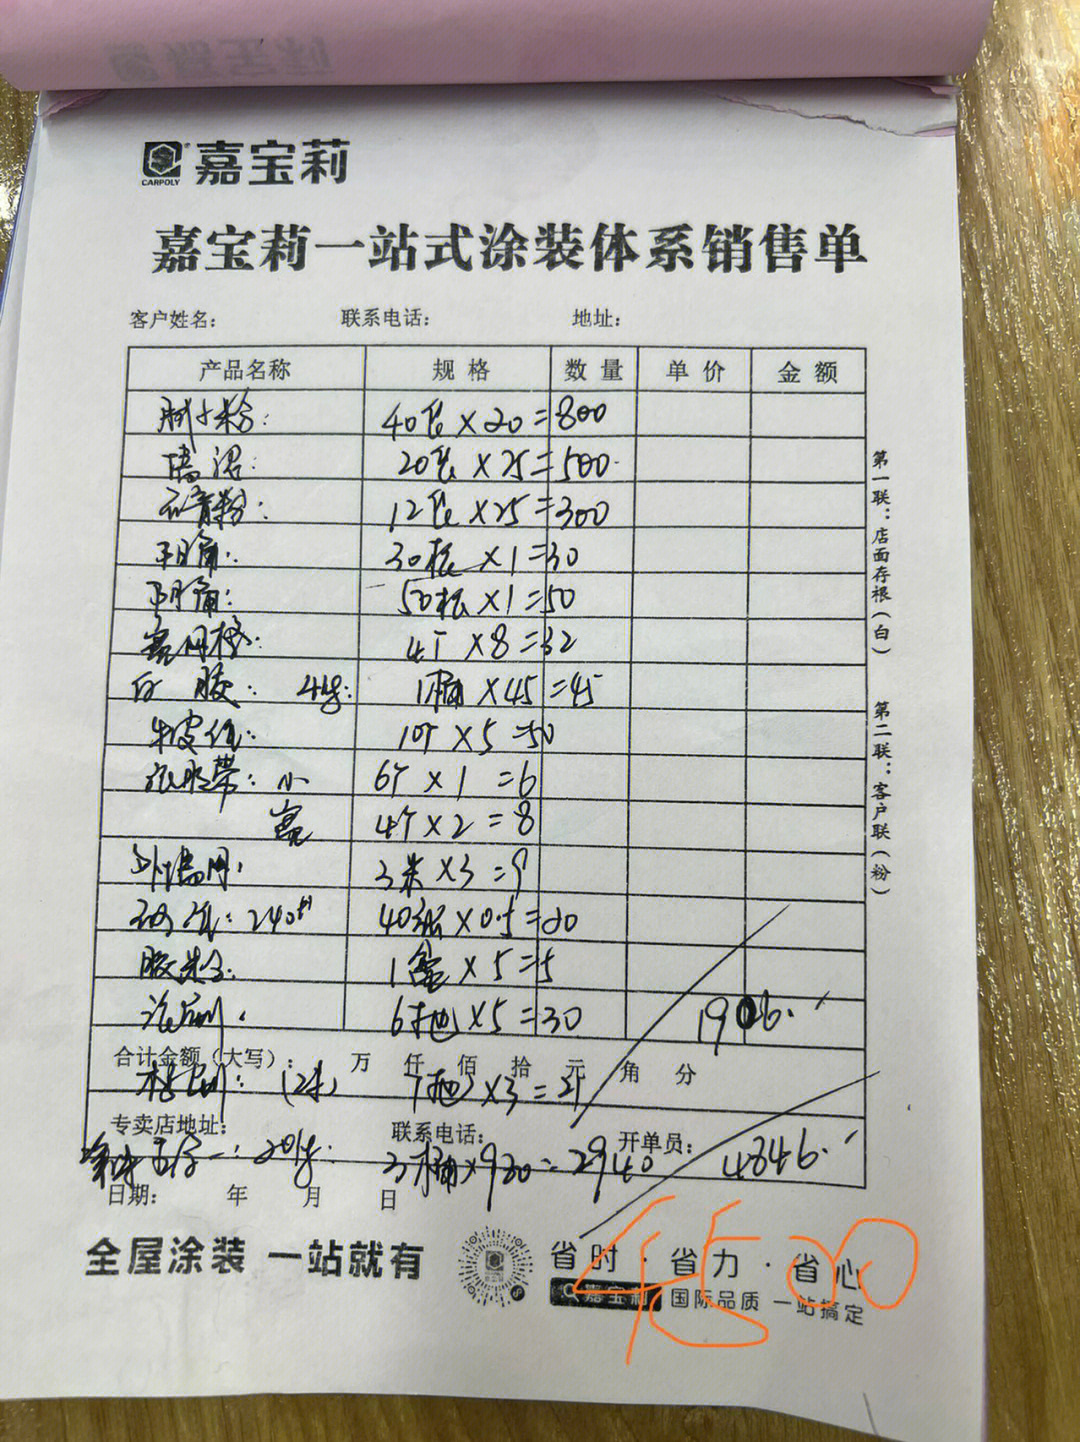 嘉宝莉
CARPOLY
嘉宝莉一站式涂装体系销售单
客户姓名： 联系电话： 地址：
产品名称 规格 数量 单价 金额
腻子粉： 40包×20=800
墙沼： 20包×25=500
石膏粉： 12包×25=300
阳角： 30根×1=30
阴角： 50根×1=50
宽网格： 4个×8=32
白胶： 4kg： 1桶×45=45
牛皮纸： 10个×5=50
纸胶带： 小 6个×1=6
宽 4个×2=8
外墙网： 3米×3=9
砂纸：240# 40张×0.5=20
胶粉： 1盒×5=5
6把×5=30 1906.
合计金额（大写）： 万 仟 佰 拾 元 角 分
(2寸) 7把×3=21
专卖店地址： 联系电话： 开单员：
五合一：20kg： 3桶×980=2940 4846.
日期： 年 月 日
全屋涂装 一站就有
省时·省力·省心
嘉宝莉 国际品质 一站搞定
4500
第一联：店面存根（白）
第二联：客户联（粉）